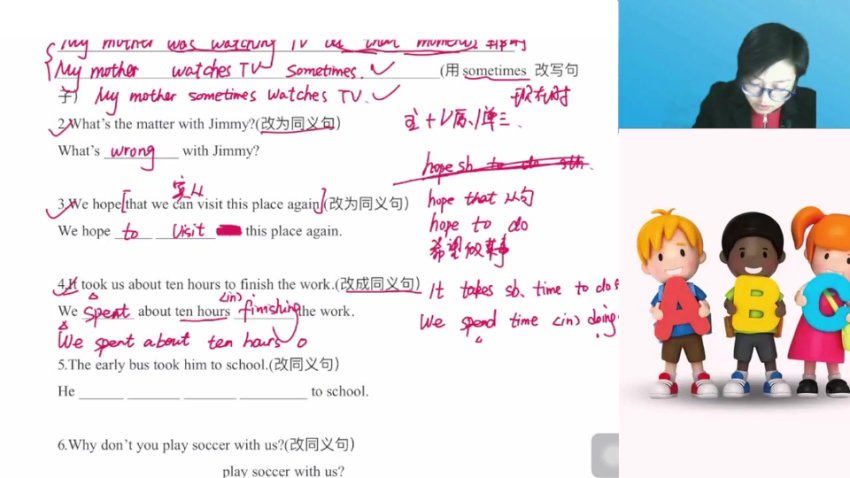 My mother was watching TV
My mother watches TV sometimes. (用 sometimes 改写句
子) My mother sometimes watches TV.
现在时
主 + V原/单三.
2.What's the matter with Jimmy?(改为同义句)
What's wrong with Jimmy?
hope sb to do sth.
宾从
3.We hope [that we can visit this place again](改为同义句)
hope that 从句
We hope to visit this place again.
hope to do
希望做某事
4.It took us about ten hours to finish the work.(改成同义句)
It takes sb. time to do
(in)
We spent about ten hours finishing the work.
We spend time (in) doing
We spent about ten hours
5.The early bus took him to school.(改同义句)
He ______ ______ ______ ______ to school.
6.Why don't you play soccer with us?(改同义句)
______ play soccer with us?
A B C